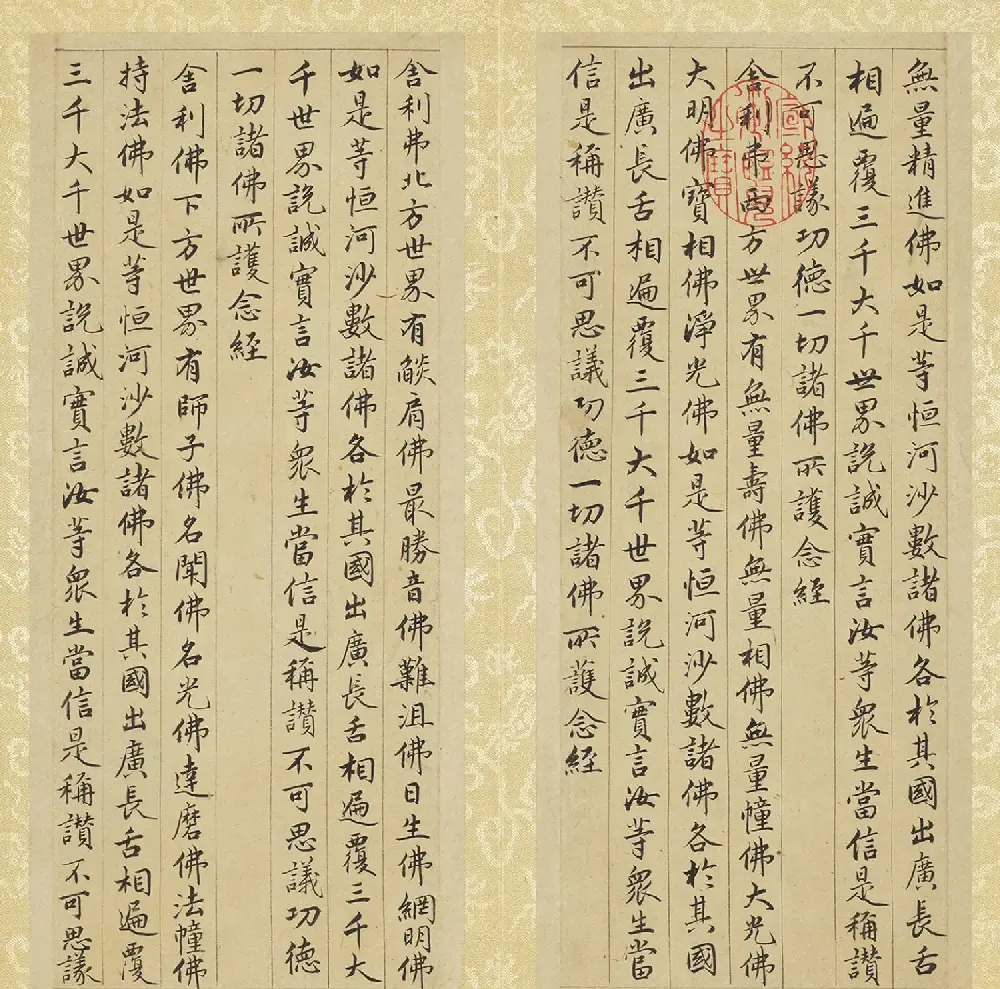 無量精進佛如是等恒河沙數諸佛各於其國出廣長舌
相遍覆三千大千世界說誠實言汝等眾生當信是稱讚
不可思議功德一切諸佛所護念經
舍利弗西方世界有無量壽佛無量相佛無量幢佛大光佛
大明佛寶相佛淨光佛如是等恒河沙數諸佛各於其國
出廣長舌相遍覆三千大千世界說誠實言汝等眾生當
信是稱讚不可思議功德一切諸佛所護念經
舍利弗北方世界有燄肩佛最勝音佛難沮佛日生佛網明佛
如是等恒河沙數諸佛各於其國出廣長舌相遍覆三千大
千世界說誠實言汝等眾生當信是稱讚不可思議功德
一切諸佛所護念經
舍利佛下方世界有師子佛名聞佛名光佛達磨佛法幢佛
持法佛如是等恒河沙數諸佛各於其國出廣長舌相遍覆
三千大千世界說誠實言汝等眾生當信是稱讚不可思議